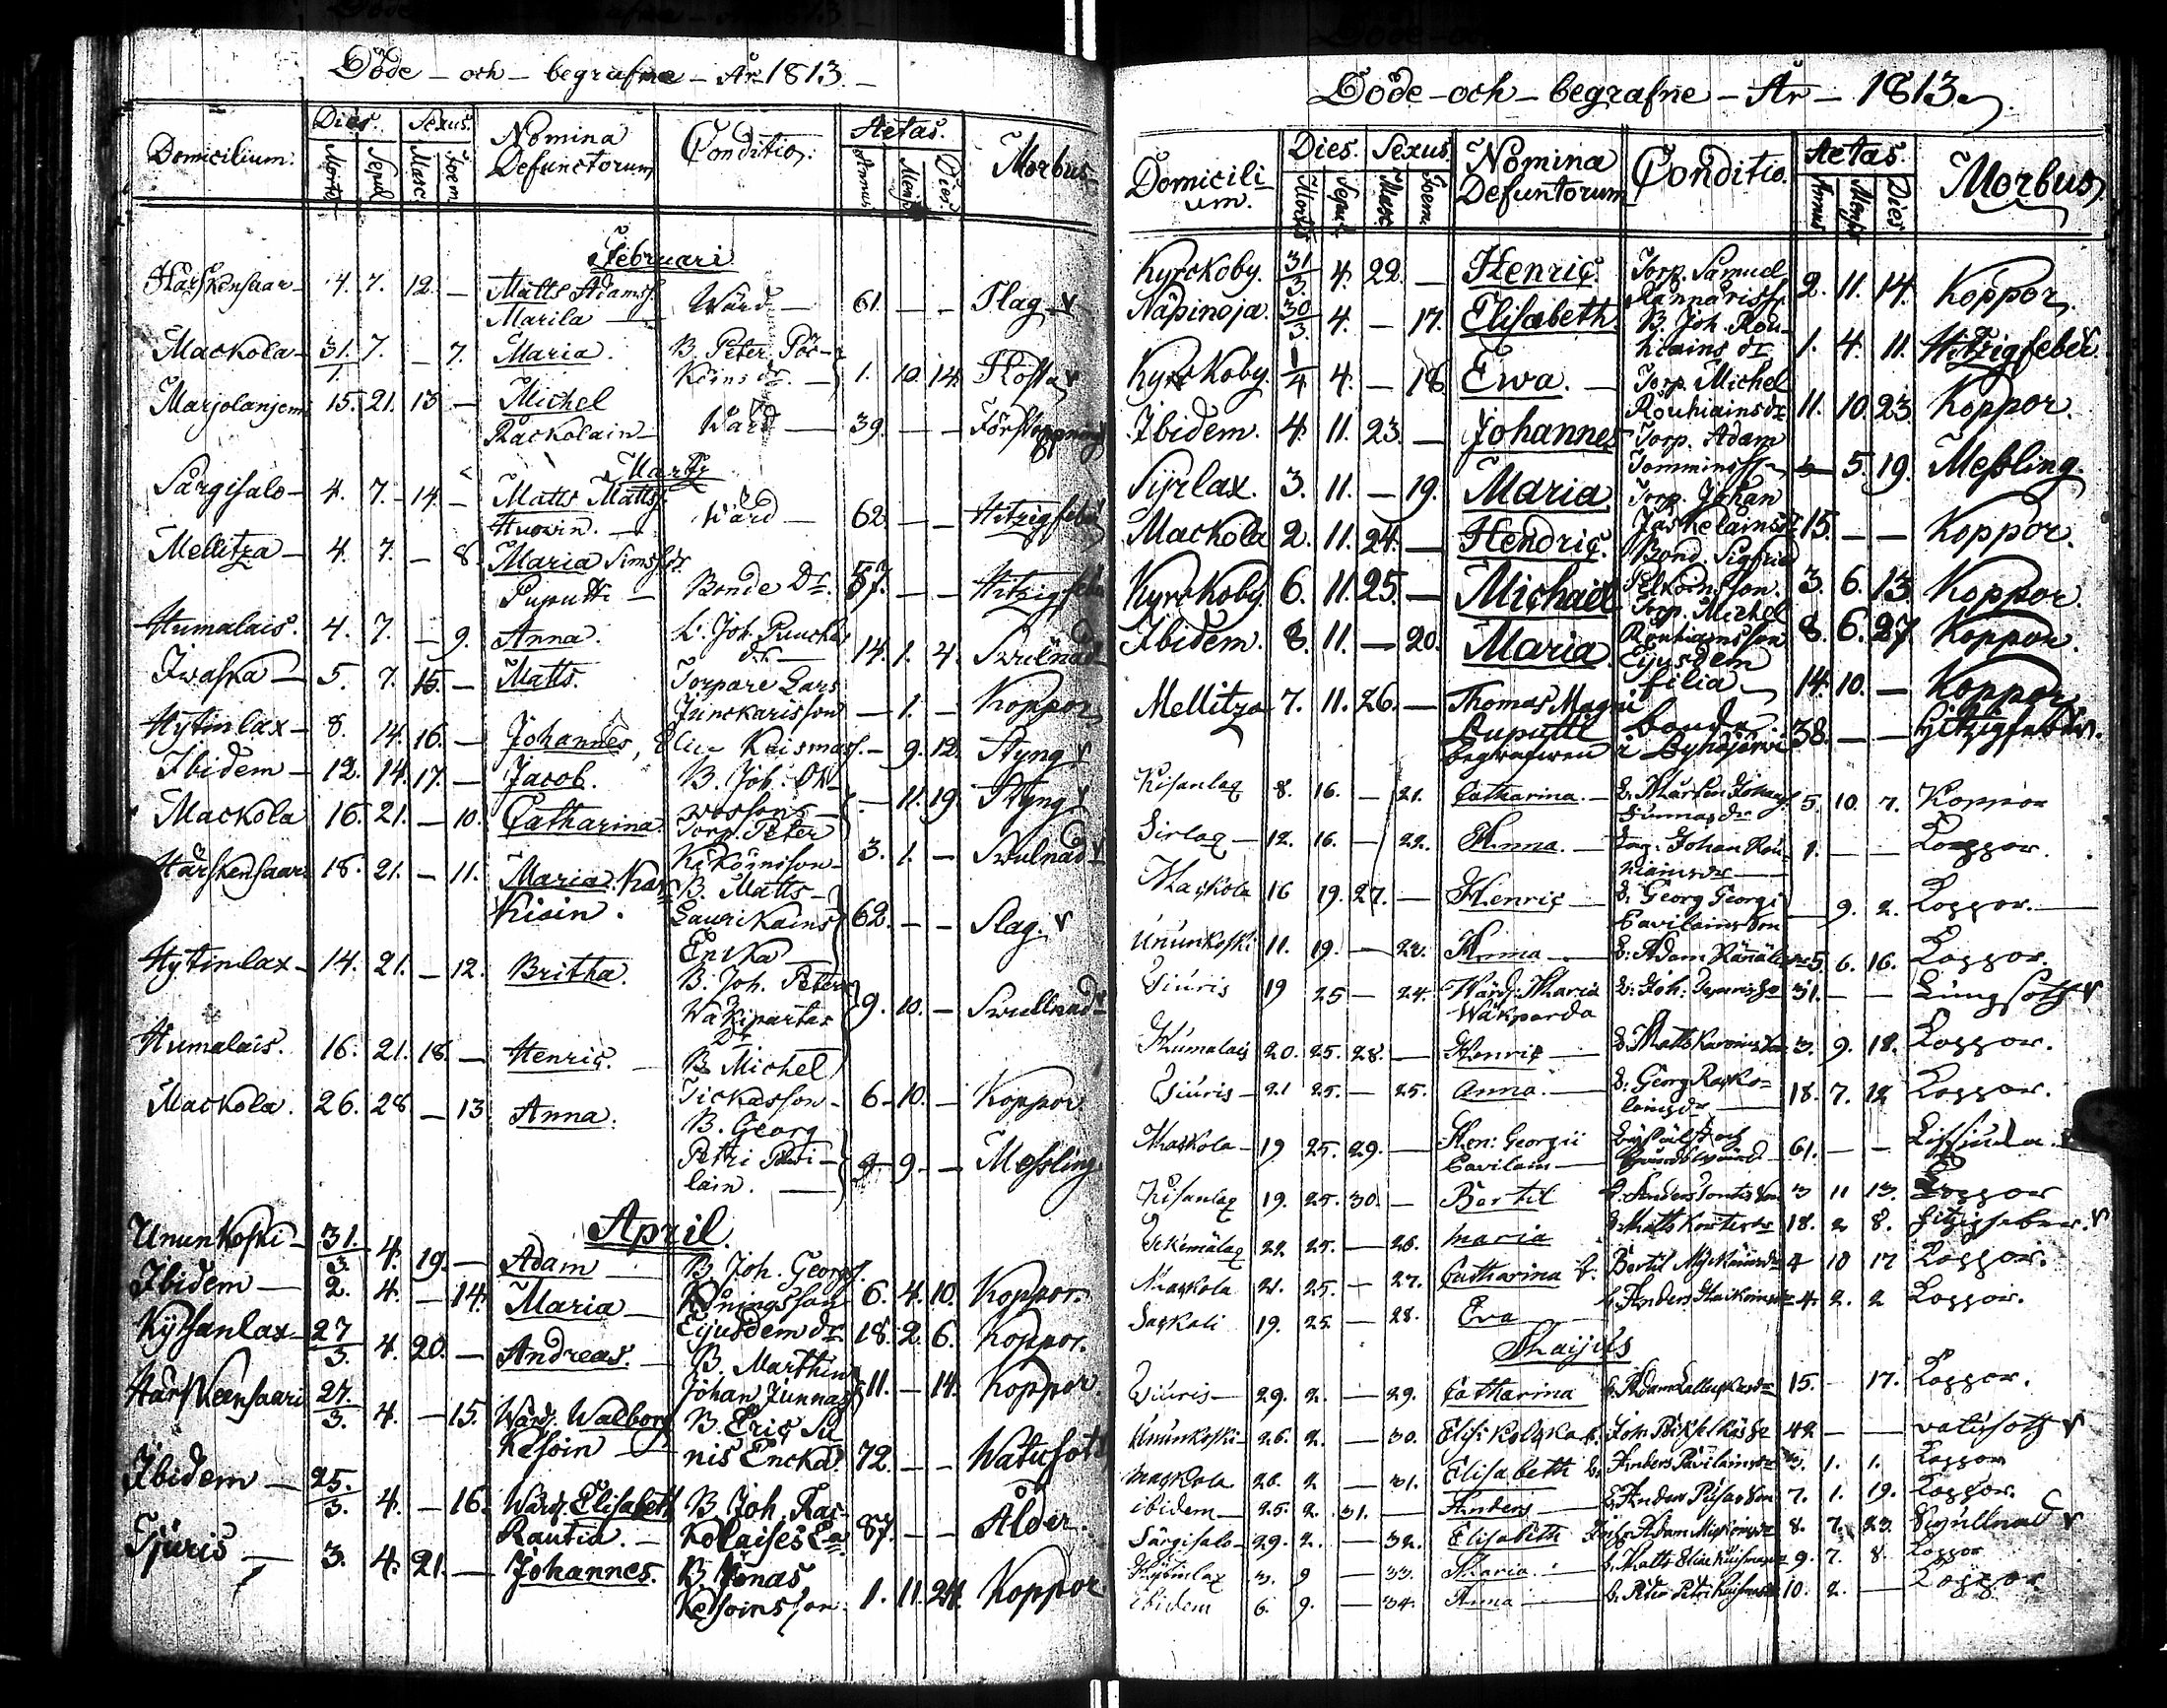 Döde - och - begrafne - År 1813 -
Domicilium. Dies. Sexus. Nomina Defunctorum Conditio. Aetas. Morbus
Mortis Sepul. Masc. Foem. Annus Mensis Dies.
Februari
Härskensaar - 4. 7. 12. - Matts Adamss. Marila - Wärd - 61. - - Slag v
Mackola - 31/1. 7. - 7. Maria. B. Peter Pör- Köins dr. - 1. 10. 14. Hosta v
Marjolanjemi 15. 21. 13 - Michel Räckolain - Wärd - 39. - - Förstoppning
Marty
Särgisalo - 4. 7. - 14. - Matts Mattss. Huovin. - Wärd - 62. - - Hitzigfeber
Mellitza - 4. 7. - 8. Maria Simsdr. Puputti - Bonde Dr. 57. - - Hitzigfeber
Humalais. 4. 7. - 9. Anna. L. Joh. dr. - 14. 1. 4. Swulnad
Iwaska - 5. 7. 15. - Matts. Torpare Lars Junckarisson - 1. - Koppor
Hytinlax - 8. 14. 16. - Johannes, Elice Kaismass. - 9. 12. Styng v
Ibidem - 12. 14. 17. - Jacob. B. Joh. Ok- wossons - - 11. 19. Styng v
Mackola 16. 21. - 10. Catharina. Torp. Peter Kiskönnison - 3. 1. - Swulnad v
Härskensaari 18. 21. - 11. Maria Kar- Kisin. B. Matts - Laurikains Encka - 62. - - Slag. v
Hytinlax - 14. 21. - 12. Britha. B. Joh. Peters Wäkipartas Dr. 9. 10. - Swullnad -
Humalais. 16. 21. 18. - Henric. - B. Michel Tickasson - 6 - 10. - Koppor
Mackola. 26. 28 - 13 Anna. B. Georg Petri Pavi- lain. - 9 - 9. - Messling
April.
Ununkoski - 31./3. 4. 19. - Adam - B. Joh. Georgs. Köningsson 6. 4. 10. Koppor.
Ibidem - 2. 4. - 14. Maria - Eijusdem dr. 18. 2. 6. Koppor.
Kijsanlax - 27/3. 4. 20. - Andreas. - B. Marthin Johan Junnass. 11. - 14. Koppor.
Härskensaari 27./3. 4. - 15. Wärd. Walborg Kesoin - B. Eric Su- nis Encka. 72. - - Watusot
Ibidem - 25./3. 4. - 16. Wärd. Elisabeth Rautia. - B. Joh. Ras- kolaises Ea. 87. - - Ålder.
Tjuris - 3. 4. 21. - Johannes. B. Jonas Kesoinsson. 1. 11. 24. Koppor
Döde - och - begrafne - År - 1813.
Domicilium. Dies. Sexus Nomina Defuntorum Conditio. Aetas. Morbus.
Mortis Sepul. Masc. Foem. Annus Mensis Dies
Kyrckoby. 31/3. 4. 22. - Henric. Torp. Samuel Rannariss. 2. 11. 14. Koppor.
Näpinoja. 30/3. 4. - 17. Elisabeth. B. Joh. Rou- hiains dr 1. 4. 11. Hitzigfeber
Kyrckoby. 1/4 4. - 18 Ewa. - Torp. Michel Rouhiainsdr 11. 10. 23. Koppor.
Ibidem. 4. 11. 23. - Johannes Torp. Adam Tomminss. - 5. 19. Messling
Sijrlax. 3. 11. - 19. Maria. Torp. Johan Jäskelainsdr 15. - - Koppor.
Mackola 2. 11. 24. - Hendric. Bond. Sigfrid Pelkoinsson. 3. 6. 13. Koppor.
Kyrckoby. 6. 11. 25. - Michael Torp. Michel Rouhiainsson 8. 6. 27 Koppor.
Ibidem. 8. 11. - 20. Maria. Eijusdem filia - 14. 10. - Koppor
Mellitza 7. 11. 26. - Thomas Magni Puputti bonde 38. - - Hitzigfeber.
begrafwen i Pyhäjärvi
Kisanlax 8. 16. - 21. Catharina. - B. Marten Johans. Junnas dr 5. 10. 7. Koppor
Sirlax - 12. 16. - 22. Anna. - Torp. Johan Rou- hiains dr - 1. - - Koppor.
Maskola 16 19. 27. - Henric - B. Georg Georgi Pavilains son - 9. 2. Koppor. -
Ununkoski 11. 19. - 23. Anna - B. Adam 5. 6. 16. Koppor.
Tiuris 19 25 - 24. Wärd. Maria Wäkparda B: Joh: 31. - - Lungsoth v
Humalais 20. 25. 28. - Henric - B. Matts 3. 9. 18. Koppor.
Tiuris - 21 25. - 25. Anna. - B: Georg Rasko- lains dr - 18. 7. 12 Koppor.
Maskola - 19 25. 29. - Hen: Georgii Pavilain - 61. - -
Kisanlax 19. 25. 30. - Bertil B. Anders 3 11 13. Koppor
22 25. - 26. Maria B. Matts 18. 2 8. Hitzigfeber. v
Maskola 21. 25. - 27. Catharina B. Bertil 4 10 17 Koppor.
Saskali 19. 25 - 28. Eva B. Anders 4. 2. 2 Koppor.
Maijus
Tiuris - 29. 2. - 29. Catharina B. Adam 15. - 17. Koppor.
Ununkoski - 26. 2. - 30. Elis: Joh. 42 - - vatusoth v
Maskola 28. 2 - 31. Elisabeth B. Anders Pavilains dr 3. 1. 1. Koppor
ibidem - 25. 2. 31. - Anders - B. Anders 7. 1. 19. Koppor.
Särgisalo - 29. 2. - 32. Elisabeth B. Adam 8. 7. 23. Svullnad v
Hytinlax 3. 9 - 33. Maria. - B. Matts 9. 7. 8. Koppor
ibidem 6. 9. - 34. Anna - B. Peter Petri 10. 2. - Koppor